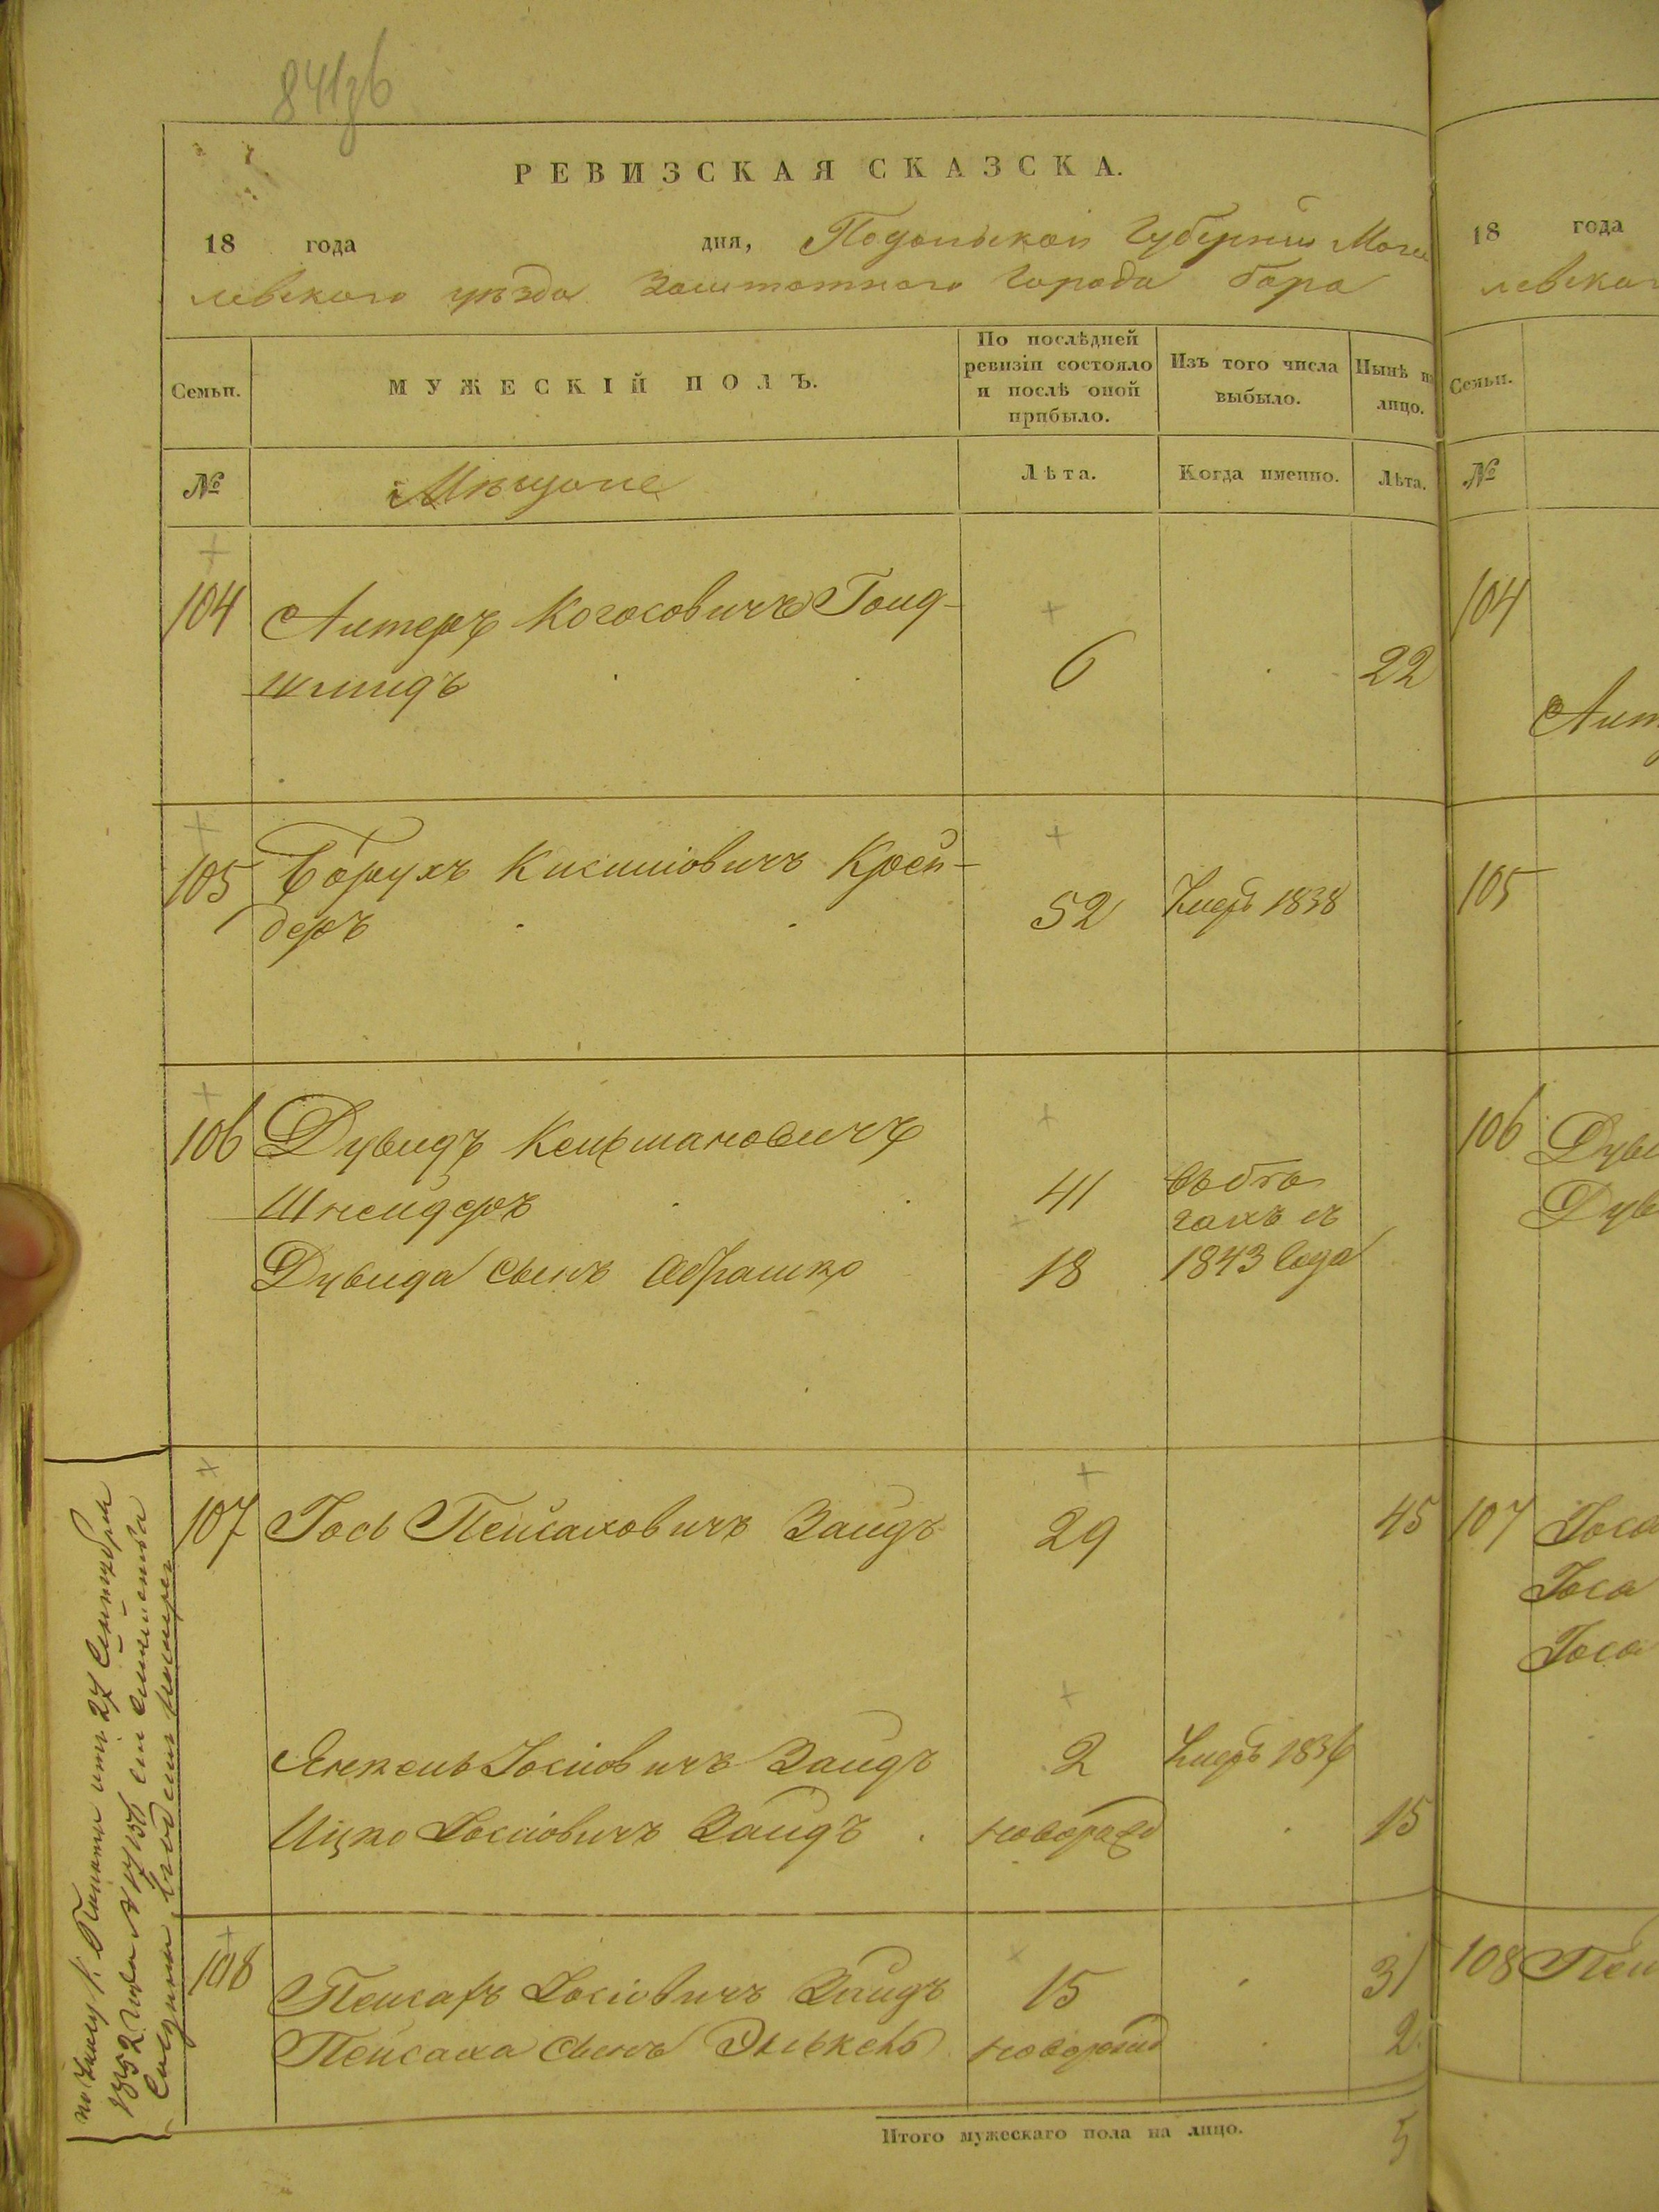 841об
РЕВИЗСКАЯ СКАЗСКА.
18 года дня, Подольской Губерніи Моги
левскаго уѣзда Заштатнаго Города бара
Семьи.
МУЖЕСКІЙ ПОЛЪ.
По послѣдней
ревизіи состояло
и послѣ оной
прибыло.
Изъ того числа
выбыло.
Нынѣ на
лицо.
№
Мѣщане
Лѣта.
Когда именно.
Лѣта.
104 Антеръ Когосовичъ Голд-
шмидъ 6 22
105 Борухъ Кисиліовичъ Крей-
деръ 52 Умеръ 1838
106 Дувидъ Кельмановичъ
Шнейдеръ 41 въ бѣ
гахъ съ
Дувида сынъ Абрашко 18 1843 Года
107 Іось Пейсаховичъ Зайдъ 29 45
Янкель Іосіовичъ Зайдъ 2 Умеръ 1836
Ицко Іосіовичъ Зайдъ новорожд 15
108 Пейсахъ Іосіовичъ Зайдъ 15 31
Пейсаха сынъ Элькень новорожд 2
Итого мужескаго пола на лицо. 5
по Указу К. Палаты отъ 27 Сентября
1852 года №
18 года
левскаг
Семьи.
№
104
Ант
105
106 Дуви
Дув
107 Іоса
Іоса
Іоса
108 Пей